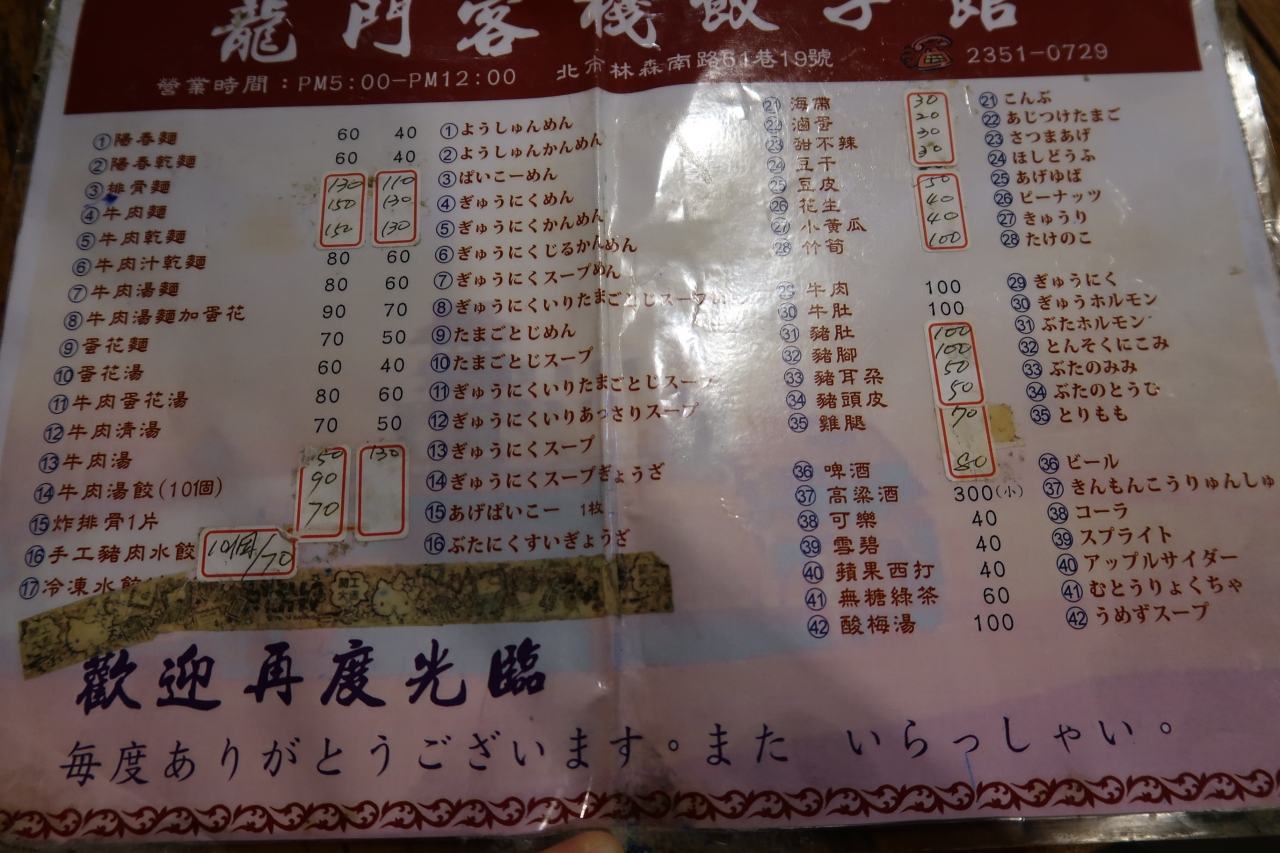 龍門客棧餃子館
營業時間：PM5:00-PM12:00 北市林森南路61巷19號 2351-0729
①陽春麵 60 40
②陽春乾麵 60 40
③排骨麵 130 110
④牛肉麵 150 130
⑤牛肉乾麵 150 130
⑥牛肉汁乾麵 80 60
⑦牛肉湯麵 80 60
⑧牛肉湯麵加蛋花 90 70
⑨蛋花麵 70 50
⑩蛋花湯 60 40
⑪牛肉蛋花湯 80 60
⑫牛肉清湯 70 50
⑬牛肉湯 50 130
⑭牛肉湯餃(10個) 90
⑮炸排骨1片 70
⑯手工豬肉水餃 10個/70
⑰冷凍水餃
①ようしゅんめん
②ようしゅんかんめん
③ぱいこーめん
④ぎゅうにくめん
⑤ぎゅうにくかんめん
⑥ぎゅうにくじるかんめん
⑦ぎゅうにくスープめん
⑧ぎゅうにくいりたまごとじスープ
⑨たまごとじめん
⑩たまごとじスープ
⑪ぎゅうにくいりたまごとじスープ
⑫ぎゅうにくいりあっさりスープ
⑬ぎゅうにくスープ
⑭ぎゅうにくスープぎょうざ
⑮あげぱいこー 1枚
⑯ぶたにくすいぎょうざ
㉑海帶 30
㉒滷蛋 20
㉓甜不辣 30
㉔豆干 30
㉕豆皮 50
㉖花生 40
㉗小黃瓜 40
㉘竹筍 100
㉙牛肉 100
㉚牛肚 100
㉛豬肚 100
㉜豬腳 100
㉝豬耳朵 50
㉞豬頭皮 50
㉟雞腿 70
㊱啤酒 80
㊲高粱酒 300(小)
㊳可樂 40
㊴雪碧 40
㊵蘋果西打 40
㊶無糖綠茶 60
㊷酸梅湯 100
㉑こんぶ
㉒あじつけたまご
㉓さつまあげ
㉔ほしどうふ
㉕あげゆば
㉖ピーナッツ
㉗きゅうり
㉘たけのこ
㉙ぎゅうにく
㉚ぎゅうホルモン
㉛ぶたホルモン
㉜とんそくにこみ
㉝ぶたのみみ
㉞ぶたのとうひ
㉟とりもも
㊱ビール
㊲きんもんこうりゅんしゅ
㊳コーラ
㊴スプライト
㊵アップルサイダー
㊶むとうりょくちゃ
㊷うめずスープ
歡迎再度光臨
毎度ありがとうございます。また いらっしゃい。